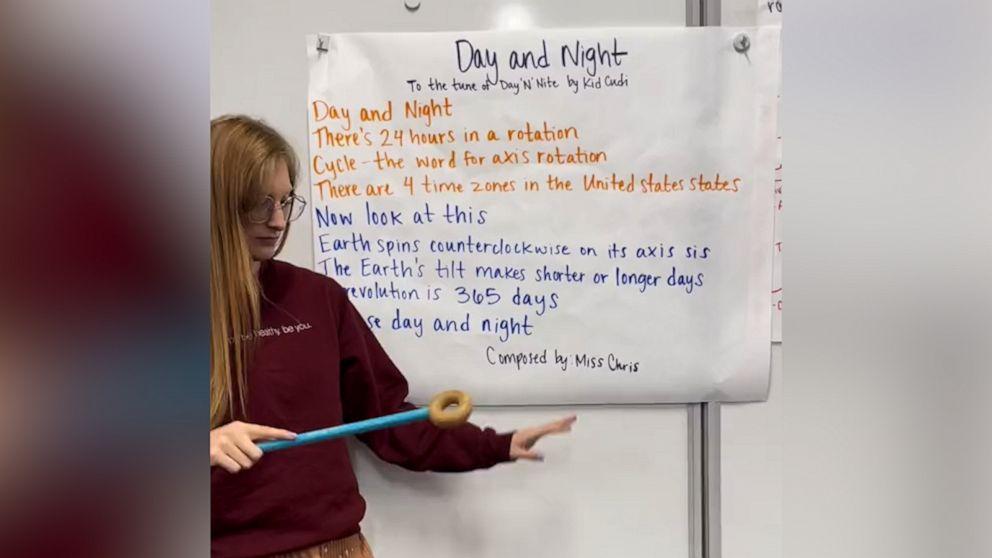 Day and Night
To the tune of Day'N'Nite by Kid Cudi
Day and Night
There's 24 hours in a rotation
Cycle - the word for axis rotation
There are 4 time zones in the United states states
Now look at this
Earth spins counterclockwise on its axis sis
The Earth's tilt makes shorter or longer days
revolution is 365 days
day and night
Composed by: Miss Chris
be healthy. be you.